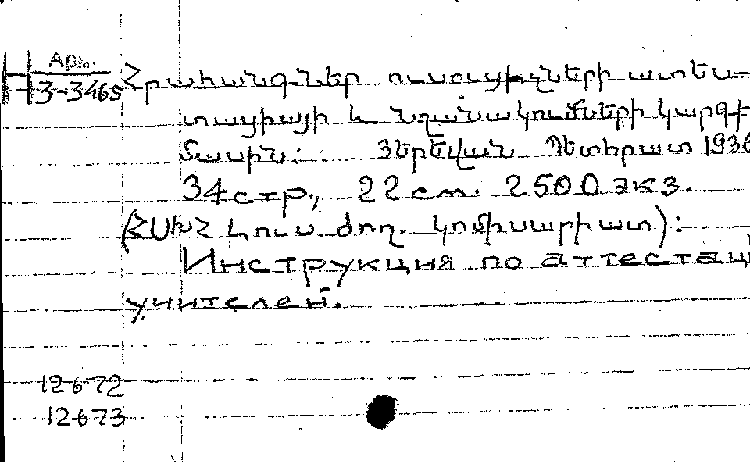 Արխ.
3-3465
Հրահանգներ ուսուցիչների ատես-
տացիայի և նշանակումների կարգի
մասին: Յերեվան Պետհրատ 1936
34 стр., 22 см. 2500 экз.
(ՀՍԽՀ Լուս. ժող. կոմիսարիատ):
Инструкция по аттестац
учителей.
12672
12673